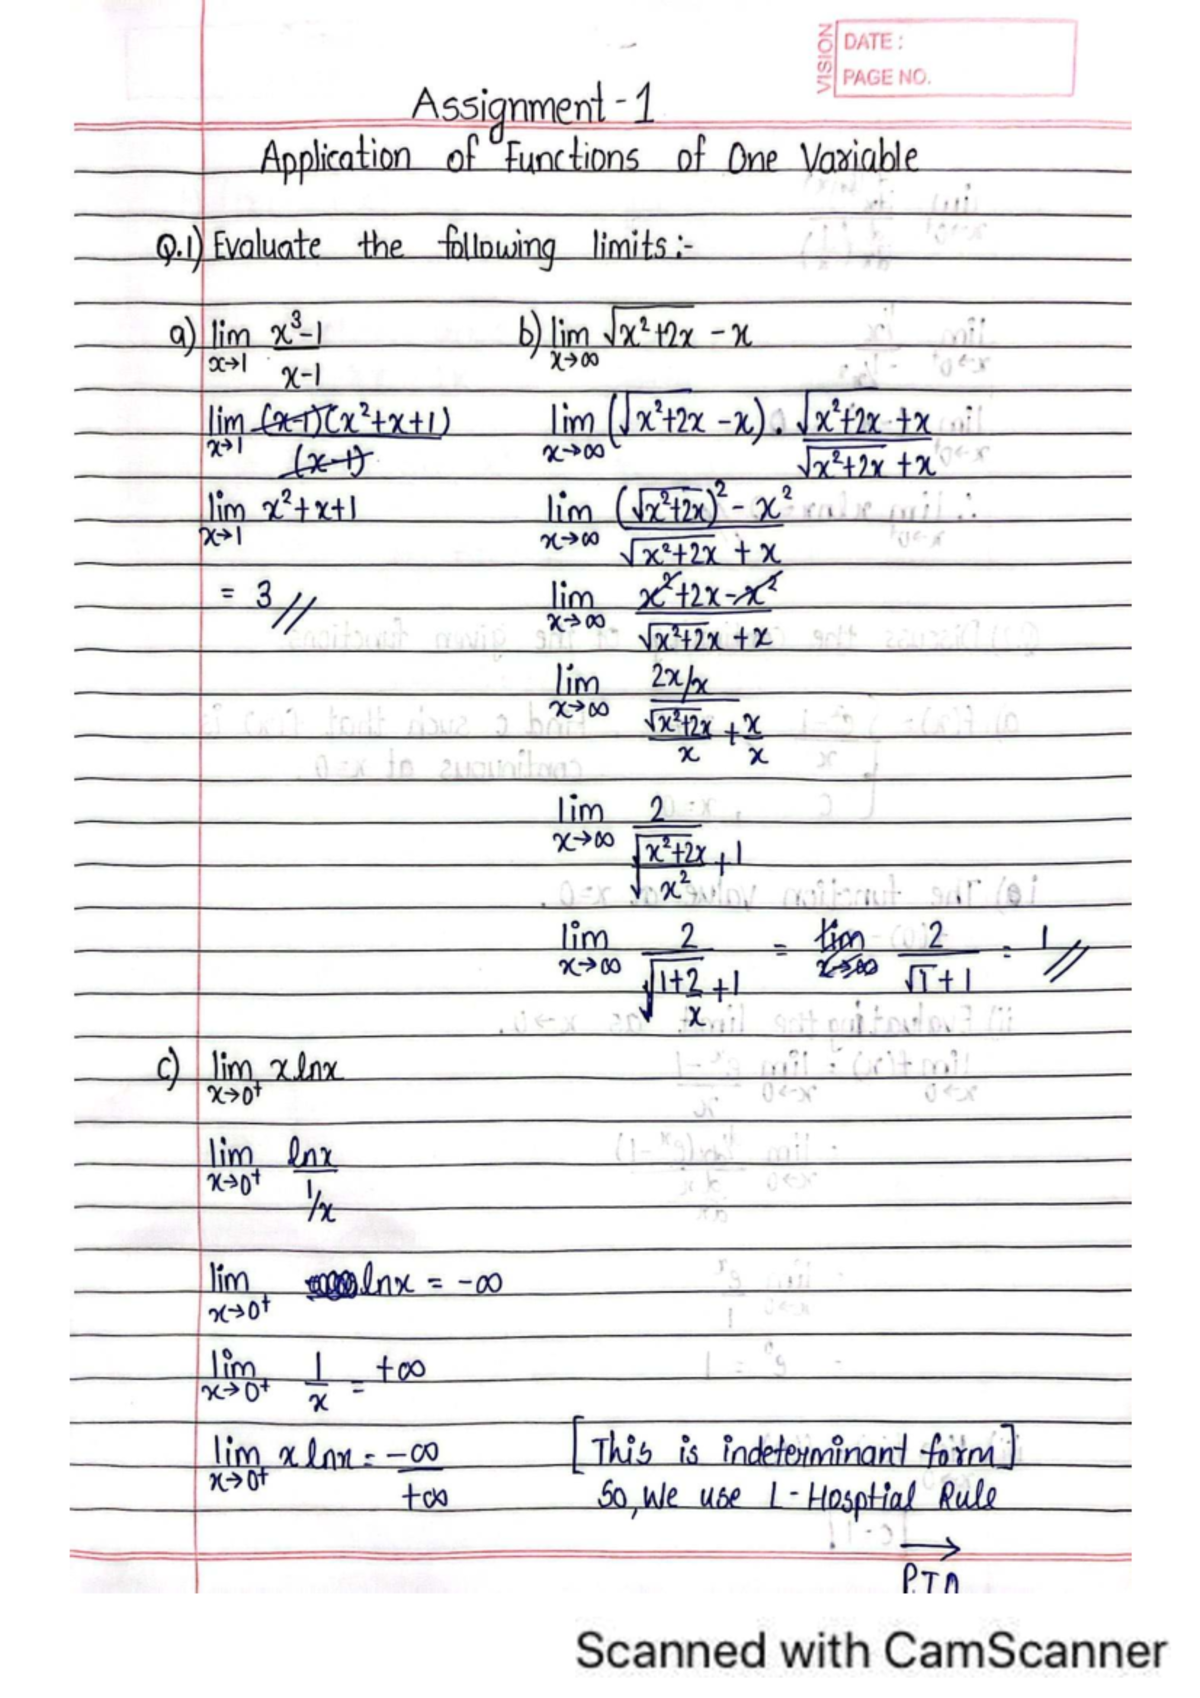 VISION
DATE :
PAGE NO.
Assignment - 1
Application of Functions of One Variable
Q.1) Evaluate the following limits :-
a) lim x→1 (x³-1)/(x-1)
lim x→1 (x-1)(x²+x+1)/(x-1)
lim x→1 x²+x+1
= 3 //
b) lim x→∞ √(x²+2x) - x
lim x→∞ (√(x²+2x) - x) . (√(x²+2x) + x)/(√(x²+2x) + x)
lim x→∞ ((√(x²+2x))² - x²)/(√(x²+2x) + x)
lim x→∞ (x²+2x-x²)/(√(x²+2x) + x)
lim x→∞ (2x/x)/(√(x²+2x)/x + x/x)
lim x→∞ 2/(√((x²+2x)/x²) + 1)
lim x→∞ 2/(√(1+2/x) + 1) = lim x→∞ 2/(√1 + 1) = 1 //
c) lim x→0⁺ x lnx
lim x→0⁺ lnx/(1/x)
lim x→0⁺ lnx = -∞
lim x→0⁺ 1/x = +∞
lim x→0⁺ x lnx = -∞/+∞ [This is indeterminant form]
So, We use L-Hosptial Rule
→
P.T.O
Scanned with CamScanner